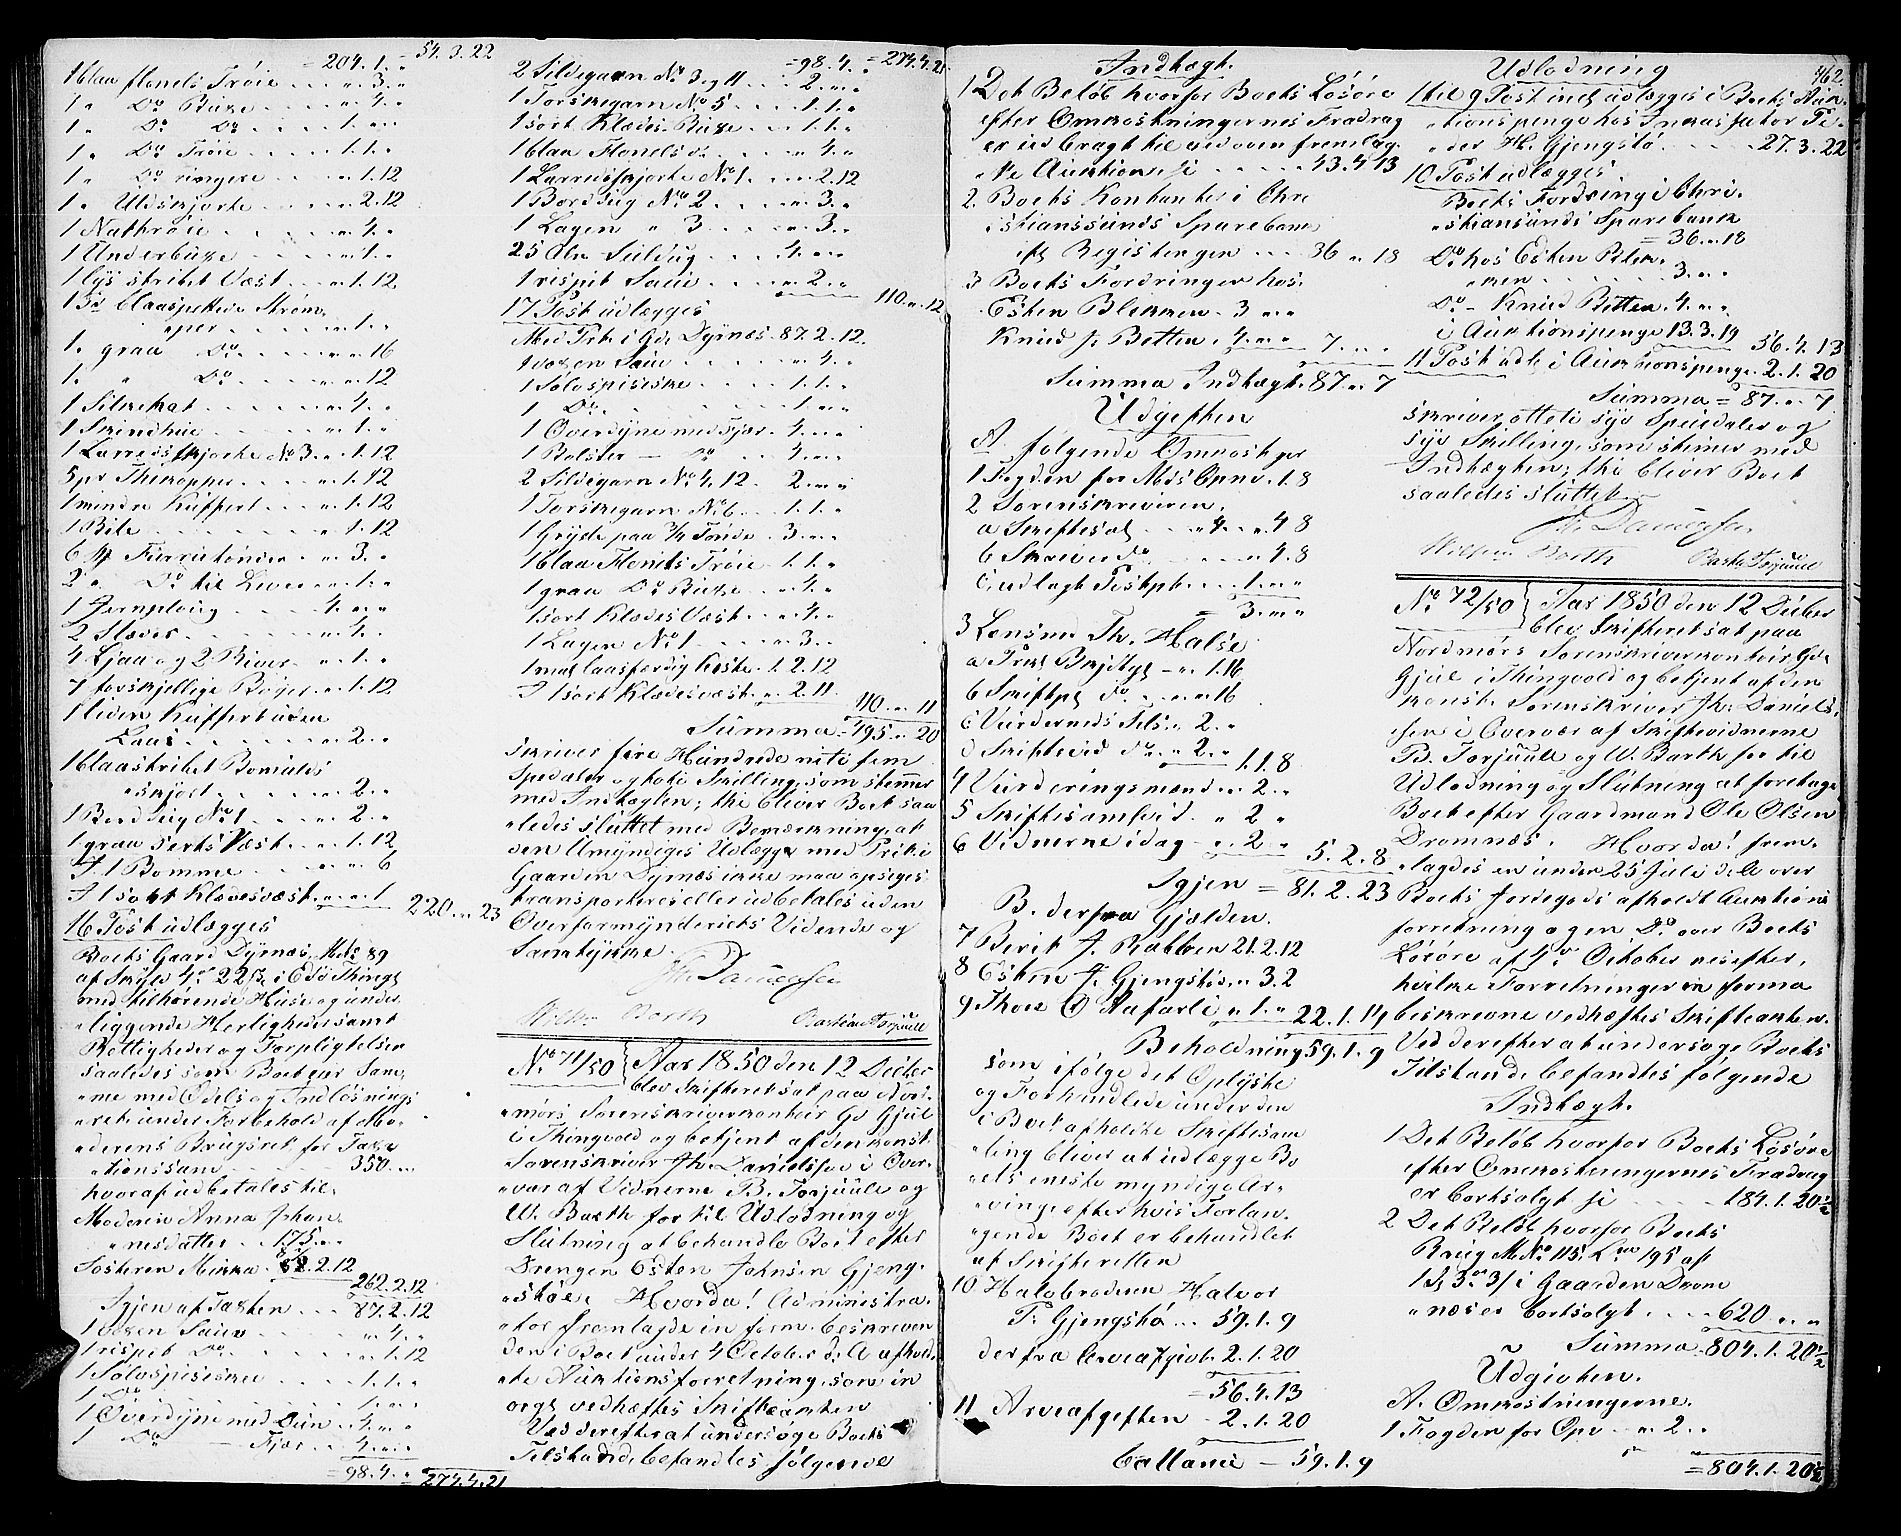 = 204. 1. „ 54. 3. 22
1 blaa flonels Trøie . . . „ 3. „
1 „ Do Buxe . . . „ 4. „
1 „ Do Do . . . 1. „ „
1 „ Do Trøie . . . 1. 1. „
1 „ Do ringere . . . „ 1. 12
1 „ Uldskjorte . . . „ 2. 12
1 Nattrøie . . . „ 4. „
1 Underbuxe . . . „ 1. „
1 lys stribet Væst . . „ 1. 12
1 Par blaaspettede Strøm-
per . . . „ 1. „
1 „ graa Do . . . „ „ 16
1 „ „ Do . . . „ „ 12
1 Silkehat . . . „ 4. „
1 Skindhue . . . „ 1. „
1 Lærredsskjorte No 3 . „ 1. 12
5 pr Thekopper . . „ 1. 12
1 mindre Kuffert . . „ 1. 12
1 Bile . . . „ 1. 12
6 Furrutønder . . „ 3. „
2 „ Do til Lever . . „ 1. „
1 Jernploug . . . 4. „ „
2 Slæder . . . „ 4. „
4 Ljaa og 2 River . . „ 1. „
7 forskjellige Bøger . „ 1. 12
1 liden Kuffert uden
Laas . . . „ 2. „
1 blaastribet Bomulds
skjort . . . „ 2. „
1 Borddug No 1 . . „ 2. „
1 graa Værst . . „ 1. 12
1 Bomme . . . „ „ 6
1 sort Klædesvæst . . „ „ 1
220. „ 23
16 Post udlægges
Boets Gaard Dyrnæs, Mtr 89
af Skyld 4 or 22 s i Edø Thingl
med tilhørende Huse og under-
liggende Herligheder samt
Rettigheder og Forpligtelser
saaledes som Boet eier sam-
me med Odels og Indløsnings
ret under Forbehold af Mo-
derens Brugsret for Taxa-
tionssum . . . 350. „ „
hvoraf udbetales til
Moderen Anna Johan-
nesdatter . . 175. „ „
Søsteren Mikka 87. 2. 12
262. 2. 12
Igjen af Taxten . . . 87. 2. 12
1 voxen Sau . . . „ 4. „
1 rispit Do . . . „ 1. 12
1 Sølvspiseske . . . 1. 1. „
1 Do . . . 1. „ „
1 Overdyne med Duun . . 4. „ „
1 Do — Fjær . . 4. „ „
= 98. 4. „ = 274. 4. 21

= 98. 4. „ = 274. 4. 21
2 Sildegarn No 3 og 11 . . 2. „ „
1 Torskegarn No 5 . . 1. 1. „
1 sort Klædes Buxe . . . 1. 1. „
1 blaa Flonels do . . . „ 4. „
1 Lærredsskjorte No 1 . . . „ 2. 12
1 Borddug No 2 . . . „ 3. „
1 Lagen „ 3 . . . „ 3. „
25 Aln Seildug . . . 4. „ „
1 rispit Sau . . . „ 2. „
110. „ 12
17 Post udlægges
Med Prt. i Gd. Dyrnæs 87. 2. 12.
1 voxen Sau . . . „ 4. „
1 Sølvspiseske . . . 1. 1. „
1 Do . . . 1. „ „
1 Overdyne med Fjær . 4. „ „
1 Bolster — Do . . 4. „ „
2 Sildegarn No 4, 12 . 2. „ „
1 Torskegarn No 6 . . 1. 1. „
1 Gryde paa ¾ Tønde . 3. „ „
1 blaa Flonels Trøie . 1. 1. „
1 graa Do Buxe . . „ 4. „
1 sort Klædes Væst . . „ 4. „
1 Lagen No 1 . . . „ 3. „
1 mallaasfærdig Kiste . 1. 2. 12
1 sort Klædesvæst . „ 2. 11
110. „ 11
Summa = 495. „ 20
skriver fire Hundrede niti fem
Spedaler og toti Skilling, som stemmer
med Indtægten; thi bliver Boet saa-
ledes sluttet med Bemærkning, at
den Umyndiges Udlægg med Prt. i
Gaarden Dyrnæs ikke maa opsiges
transporteres eller udbetales uden
Overformynderiets Vidende og
Samtykke.
Jh. Danielsen
Wilhm Barth Bastian Torjuul

No 71/50 } Aar 1850 den 12 Decbr
blev Skifteret sat paa Nord-
mørs Sorenskriverkontoir Gd Gjul
i Thingvold og betjent af den konst.
Sorenskriver Jh. Danielsen i Over-
vær af Vidnerne B. Torjuul og
W. Barth for til Udlodning og
Slutning at behandle Boet efter
Drengen Esten Johnsen Gjeng-
støe. Hvorda! Administra-
tor fremlagde in form. beskreven
den i Boet under 4 October d. A afhold-
te Auktionsforretning, som in
orgl vedhæftes Skifteakten
Ved derefter at undersøge Boets
Tilstand befandtes følgende

Indtægt.
1 Det Beløb hvorfor Boets Løsøre
efter Omkostningernes Fradrag
er udbragt til ved oven fremlag-
te Auktion, si . . . 43. 4. 13
2. Boets Kontanter i Chri
stianssunds Sparebank
eft. Registeringen . . . 36 „ 18
3 Boets Fordringer hos:
Esten Blekken . 3 „ „
Knud J. Betten . 4. „ „ 7. „ „
Summa Indtægt. 87 „ 7
Udgiften
A. følgende Omkostgr
1 Fogden for Mds Opnv . 1. 8
2 Sorenskriveren.
a Skiftesal . . „ 4. „ 4 8
b Skriver do . . . „ 4. 8
c udlagt Postpt . . . 1. „ „
= 3. „ „
3 Lensm. Th. Halse
a . . . — „ 1. 16
b Skiftpl do . „ „ „ 16
c Vurderneds Tils . „ 2. „
d Skiftevid do . „ 2. „ 1. 1. 8
4 Vurderingsmænd . . „ 2. „
5 Skiftesamlvid. „ 2 „
6 Vidnerne idag . . „ 2 „
5. 2. 8
Igjen = 81. 2. 23
B. derfra Gjælden.
7 Berit J. Rabben 21. 2. 12
8 Esten J. Gjengstøs . „ 3. 2
9 Thore O Aafarli . „ 1. „ 22. 1. 14
Beholdning 59. 1. 9
som ifølge det Oplyste
og Forhandlede under den
i Boet afholdte Skiftesam
ling bliver at udlægge Bo
ets eneste myndige Ar-
ving efter hvis Forlan-
gende Boet er behandlet
af Skifteretten
10 Halvbroderen Halvor
P. Gjengstø . . . 59. 1. 9
derfra Arveafgivt. 2. 1. 20
= 56. 4. 13
11 Arveafgiften . 2. 1. 20
Ballance — 59. 1. 9

Udlodning 462
1 til 9 Post incl udlægges i Boets Auk-
tionspenge hos Inkassator Pe-
der H. Gjengstø . . . 27. 3. 22
10 Post udlægges.
Boets Fordring i Chri-
stianssunds Sparebank
= 36. „ 18
Do hos Esten Blek-
ken . . . 3. „ „
Do — Knud Betten 4. „ „
i Auktionspenge 13. 3. 19
56. 4. 13
11 Post udl. i Auktionspenge 2. 1. 20
Summa = 87. „ 7
skriver otteti syv Speciedaler og
syv Skilling, som stemer med
Indtægten; thi bliver Boet
saaledes sluttet.
Jh. Danielsen
Wilhm Barth Bastn Torjuul

No 72/50 } Aar 1850 den 12 Decber
blev Skifteret sat paa
Nordmørs Sorenskriverkontoir Gd
Gjul i Thingvold og betjent af den
konst. Sorenskriver Jh. Daniel-
sen i Overvær af Skiftevidnerne
B. Torjuul og W. Barth for til
Udlodning og Slutning at foretage
Boet efter Gaardmand Ole Olsen
Dromnæs. Hvorda! frem-
lagdes en under 25 Juli d. A over
Boets Jordegods afholdt Auktions
forretning og en Do over Boets
Løsøre af 4de October næstefter,
hvilke Forretninger in forma
beskrevne vedhæftes Skifteakten.
Ved derefter at undersøge Boets
Tilstand befandtes følgende
Indtægt.
1 Det Beløb hvorfor Boets Løsøre
efter Omkostningernes Fradrag
er bortsolgt si . . . 184. 1. 20½
2 Det Beløb hvorfor Boets
Brug M No 115, L No 195 af
1 3 or 3 i Gaarden Drom
næs er bortsolgt . . . 620 „ „
Summa 804. 1. 20½
Udgivten.
A. Omkostningerne.
1 Fogden for Opv . „ 2. „
= 804. 1. 20½